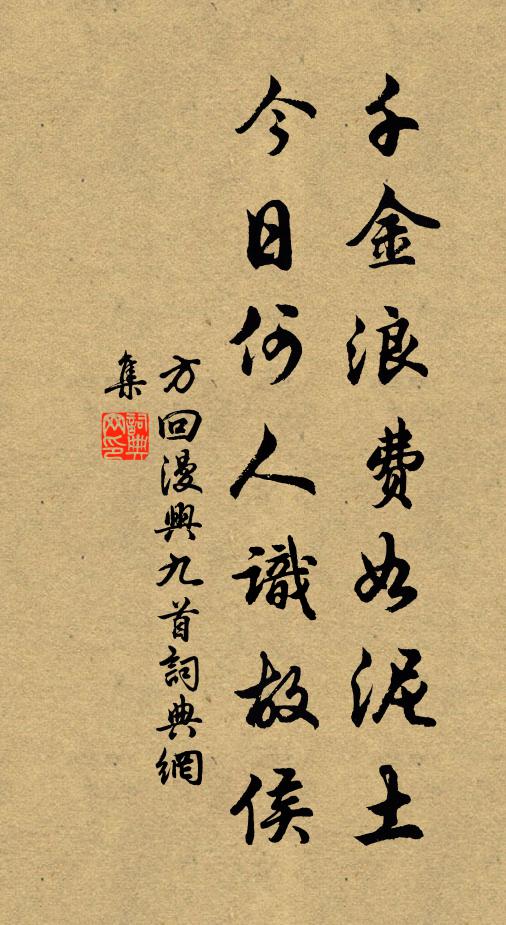 千金浪費如泥土
今日何人識故侯
方回漫興九首詞典網
集
詞典
网印